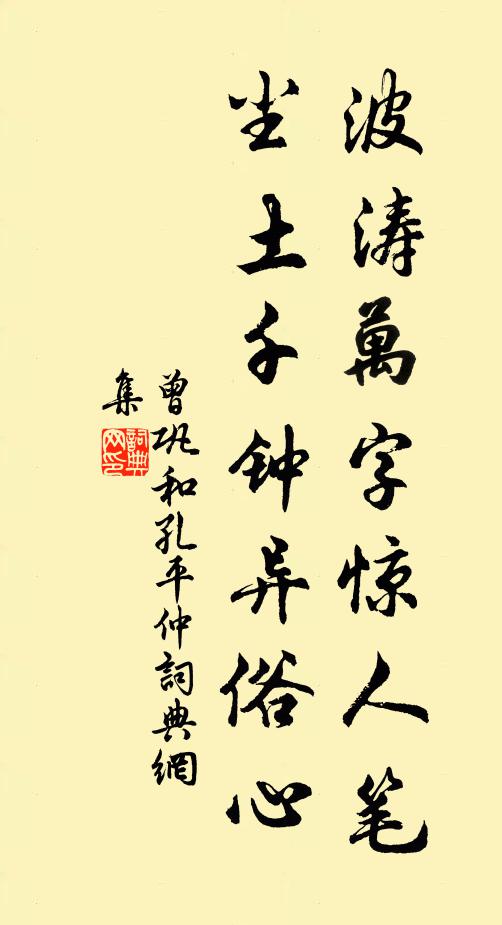 波涛萬字惊人笔
尘土千钟异俗心
曾巩和孔平仲詞典網
集
詞典
网印